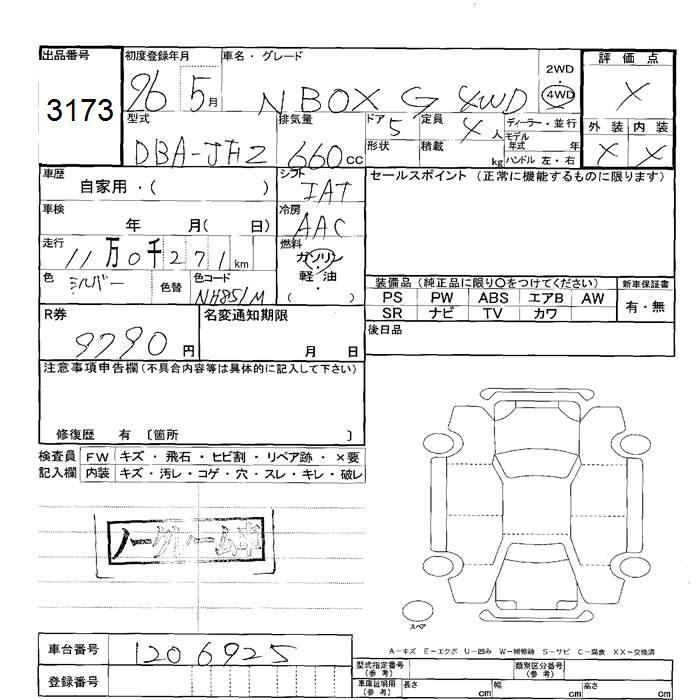 出品番号 初度登録年月 車名・グレード 評価点
3173 26 5月 N BOX G 4WD 2WD・4WD X
型式 排気量 ドア 定員 ディーラー・並行 外装 内装
DBA-JF2 660cc 5 4人 モデル年式 年 X X
形状 積載 kg ハンドル 左・右
車歴 シフト セールスポイント (正常に機能するものに限ります)
自家用・( ) IAT
車検 冷房
年 月( 日) AAC
走行 燃料
11万0千271km ガソリン・軽油
色 シルバー 色替 色コード NH851M ( )
装備品(純正品に限り○をつけてください) 新車保証書
PS PW ABS エアB AW 有・無
SR ナビ TV カワ
R券 名変通知期限 後日品
9790円 月 日
注意事項申告欄(不具合内容等は具体的に記入して下さい)
修復歴 有 〔箇所 〕
検査員 FW キズ・飛石・ヒビ割・リペア跡・×要
記入欄 内装 キズ・汚レ・コゲ・穴・スレ・キレ・破レ
ノークレーム車
スペア
A-キズ E-エクボ U-凹み W-補修跡 S-サビ C-腐食 XX-交換済
車台番号 1206925
型式指定番号(参考) 類別区分番号(参考)
登録番号
車庫証明用(参考) 長さ cm 幅 cm 高さ cm